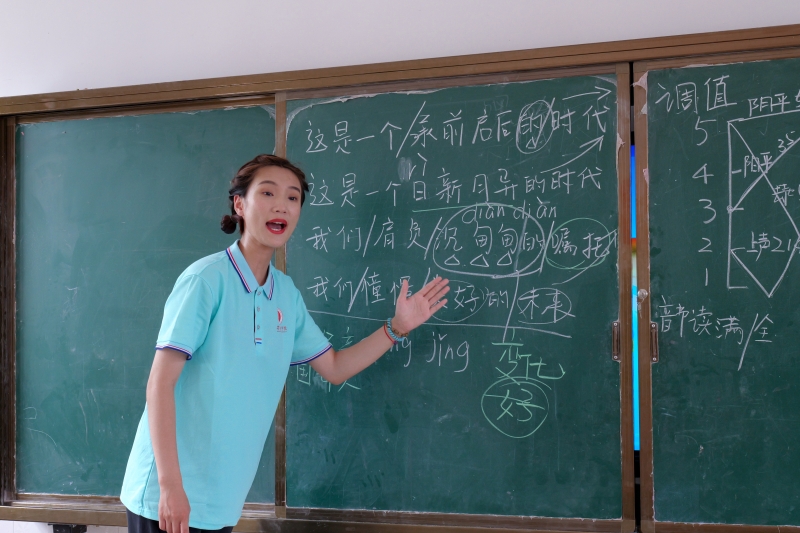 这是一个/承前启后的/时代
这是一个日新月异的时代
diàn diàn
我们/肩负/沉甸甸的嘱托
我们/憧憬/好的/未来
jǐng
变化
好
调值
阴平
5
4
3
2
1
35
阳平
上声
音节读满/全